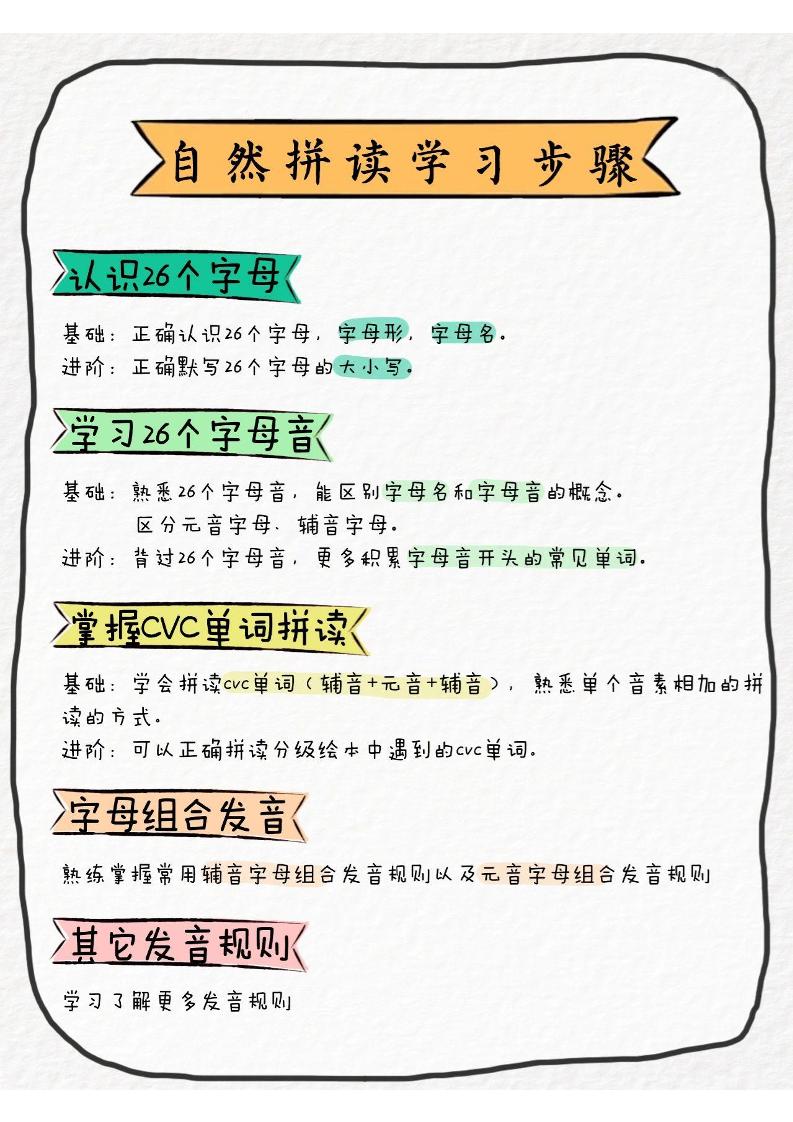 自然拼读学习步骤
认识26个字母
基础：正确认识26个字母，字母形，字母名。
进阶：正确默写26个字母的大小写。
学习26个字母音
基础：熟悉26个字母音，能区别字母名和字母音的概念。
区分元音字母、辅音字母。
进阶：背过26个字母音，更多积累字母音开头的常见单词。
掌握CVC单词拼读
基础：学会拼读cvc单词（辅音+元音+辅音），熟悉单个音素相加的拼
读的方式。
进阶：可以正确拼读分级绘本中遇到的cvc单词。
字母组合发音
熟练掌握常用辅音字母组合发音规则以及元音字母组合发音规则
其它发音规则
学习了解更多发音规则